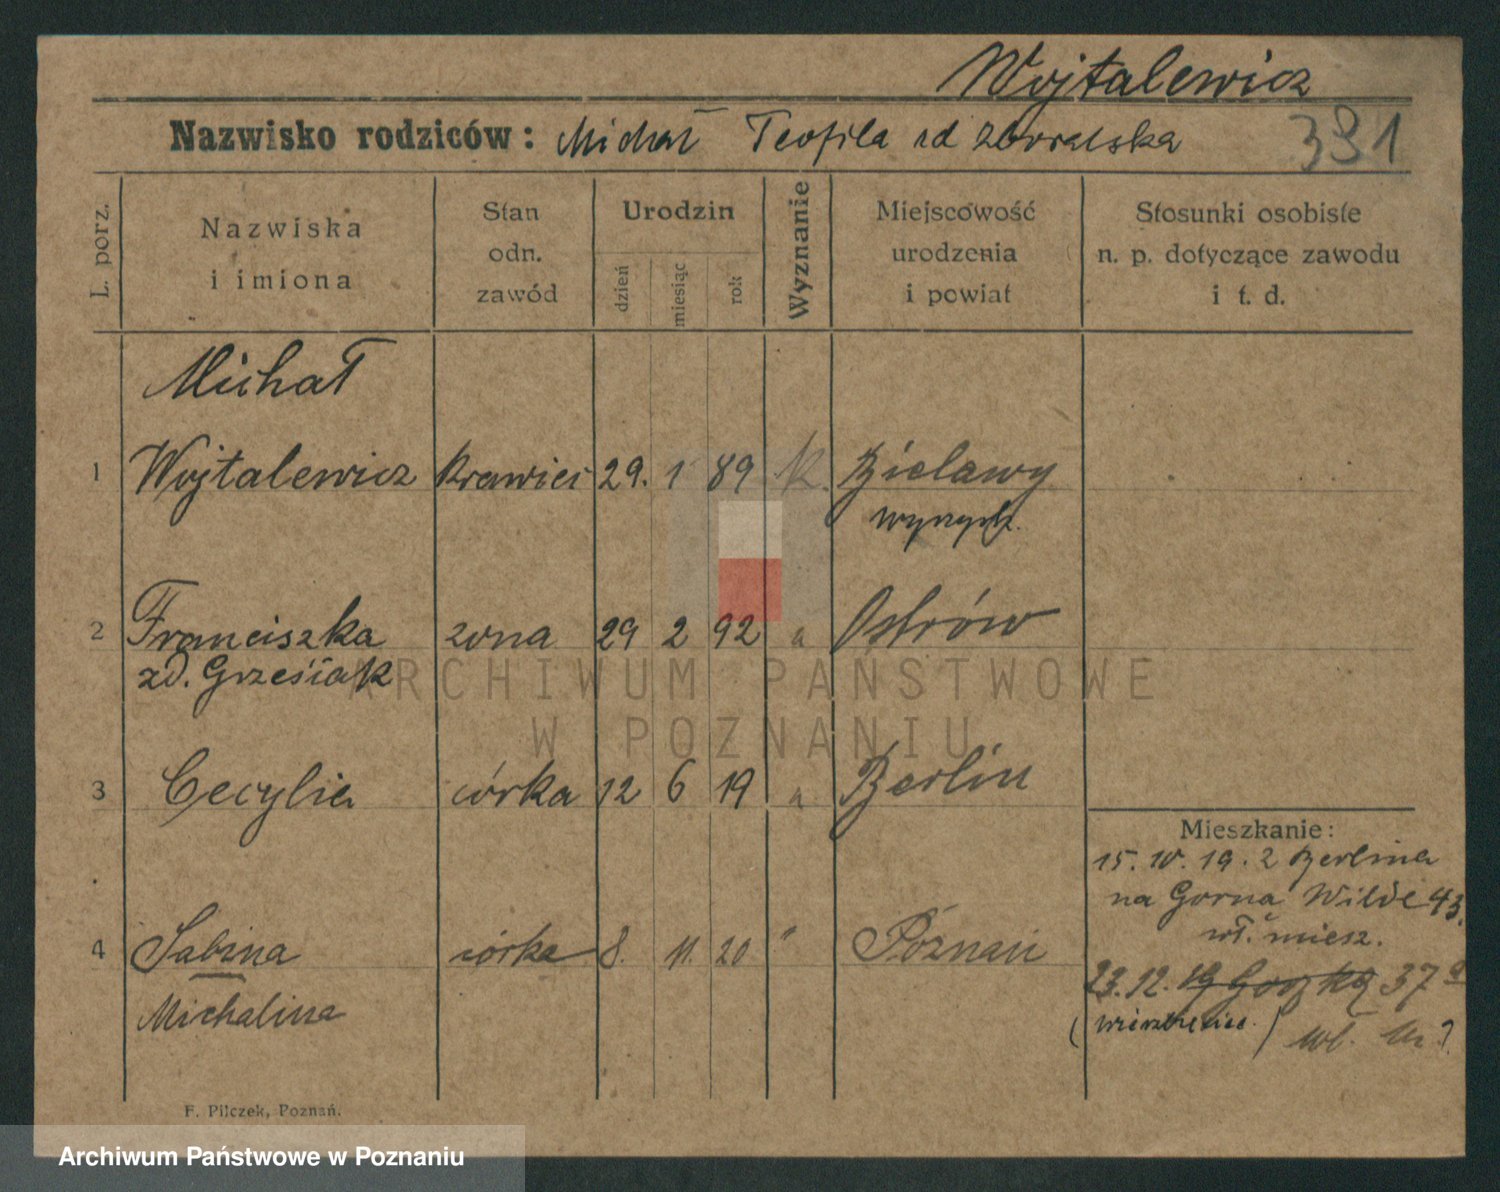 Wojtalewicz
Nazwisko rodziców: Michał Teofila zd Zboralska
391
L. porz.
Nazwiska
i imiona
Stan
odn.
zawód
Urodzin
dzień
miesiąc
rok
Wyznanie
Miejscowość
urodzenia
i powiat
Stosunki osobiste
n. p. dotyczące zawodu
i t. d.
Michał
1 Wojtalewicz krawiec 29. 1 89 k. Bielawy
wyrzysk.
2 Franciszka żona 29 2 92 " Ostrów
zd. Grześiak
ARCHIWUM PAŃSTWOWE
W POZNANIU
3 Cecylia córka 12 6 19 " Berlin
Mieszkanie:
15. 10. 19. z Berlina
na Gorna Wilde 43.
wł. miesz.
4 Sabina córka 8. 11. 20 " Poznań
23. 12. 19 37
Michalina
wł.
F. Pilczek, Poznań.
Archiwum Państwowe w Poznaniu